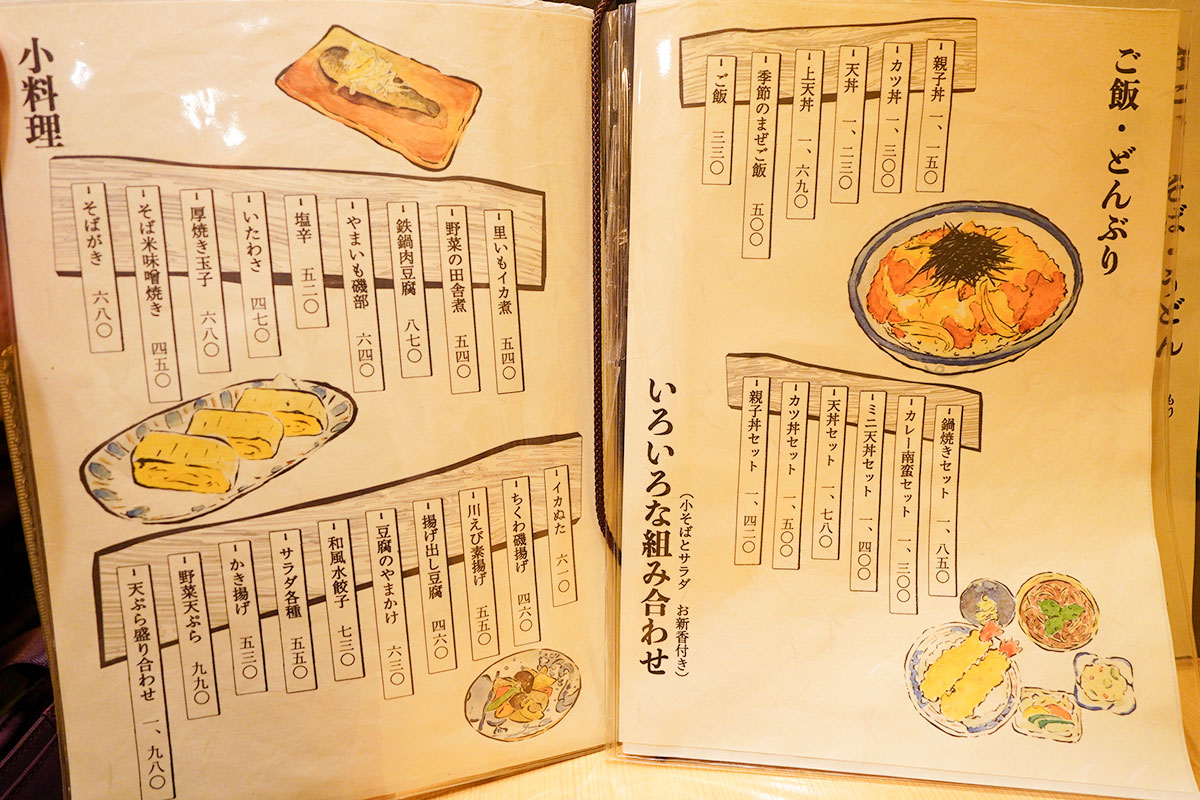 ご飯・どんぶり
親子丼 一、一五〇
カツ丼 一、三〇〇
天丼 一、二三〇
上天丼 一、六九〇
季節のまぜご飯 五〇〇
ご飯 三三〇
いろいろな組み合わせ
(小そばとサラダ お新香付き)
鍋焼きセット 一、八五〇
カレー南蛮セット 一、三〇〇
ミニ天丼セット 一、四〇〇
天丼セット 一、七八〇
カツ丼セット 一、五〇〇
親子丼セット 一、四二〇
小料理
里いもイカ煮 五四〇
野菜の田舎煮 五四〇
鉄鍋肉豆腐 八七〇
やまいも磯部 六四〇
塩辛 五二〇
いたわさ 四七〇
厚焼き玉子 六八〇
そば米味噌焼き 四五〇
そばがき 六八〇
イカぬた 六一〇
ちくわ磯揚げ 四六〇
川えび素揚げ 五五〇
揚げ出し豆腐 四六〇
豆腐のやまかけ 六三〇
和風水餃子 七三〇
サラダ各種 五五〇
かき揚げ 五三〇
野菜天ぷら 九九〇
天ぷら盛り合わせ 一、九八〇
そば・うどん